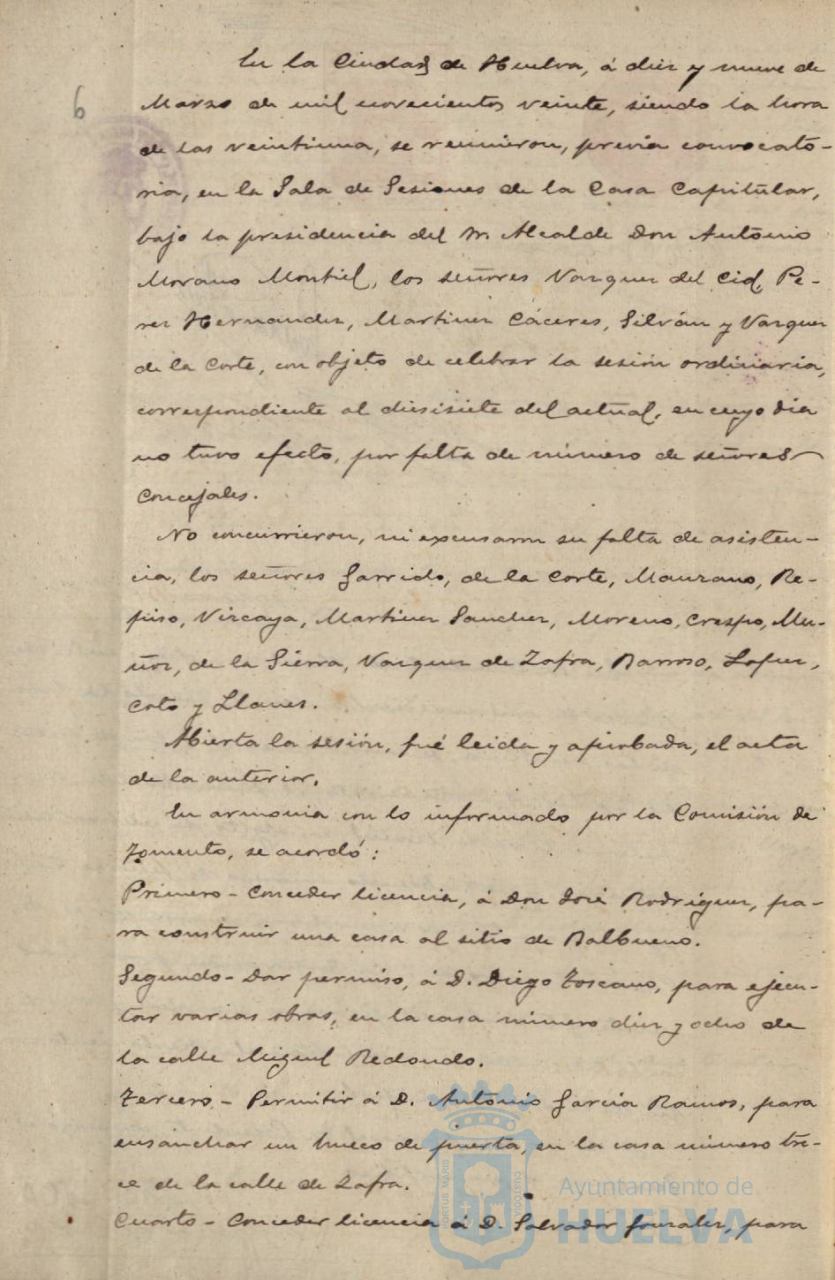 6
En la Ciudad de Huelva, á diez y nueve de
Marzo de mil novecientos veinte, siendo la hora
de las veintiuna, se reunieron, previa convocato-
ria, en la Sala de Sesiones de la Casa Capitular,
bajo la presidencia del Sr. Alcalde Don Antonio
Morano Montiel, los señores Vazquez del Cid, Pe-
rez Hernandez, Martinez Cáceres, Silván y Vazquez
de la Corte, con objeto de celebrar la sesión ordinaria,
correspondiente al diesisiete del actual, en cuyo dia
no tuvo efecto, por falta de número de señores
Concejales.
No concurrieron, ni excusaron su falta de asisten-
cia, los señores Garrido, de la Corte, Manzano, Re-
piso, Vizcaya, Martinez Sanchez, Moreno, Crespo, Mu-
ñoz, de la Sierra, Vazquez de Zafra, Barroso, Lopez,
Coto y Llanes.
Abierta la sesión, fué leida y aprobada, el acta
de la anterior.
En armonia con lo informado por la Comisión de
Fomento, se acordó:
Primero - Conceder licencia, á Don José Rodriguez, pa-
ra construir una casa al sitio de Balbueno.
Segundo - Dar permiso, á D. Diego Toscano, para ejecu-
tar varias obras, en la casa número diez y ocho de
la calle Miguel Redondo.
Tercero - Permitir á D. Antonio Garcia Ramos, para
ensanchar un hueco de puerta, en la casa número tre-
ce de la calle de Zafra.
Cuarto - Conceder licencia á D. Salvador Gonzalez, para
Ayuntamiento de
HUELVA